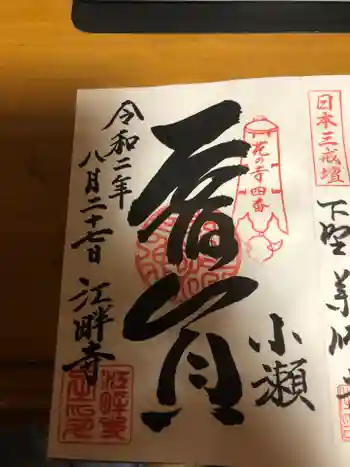 日本三戒壇
下野薬師寺
花の寺四番
小瀬
令和二年
八月二十七日
江畔寺
江畔寺
之印